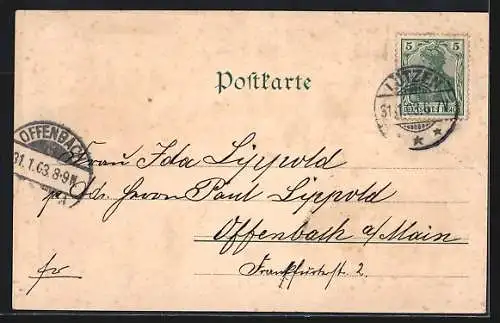 5 5
Postkarte
LÜTZEN
31.
OFFENBACH
31.1.03.8-9N.
Frau Ida Lippold
Herrn Paul Lippold
Offenbach a/Main
Frankfurterst. 2.
fr